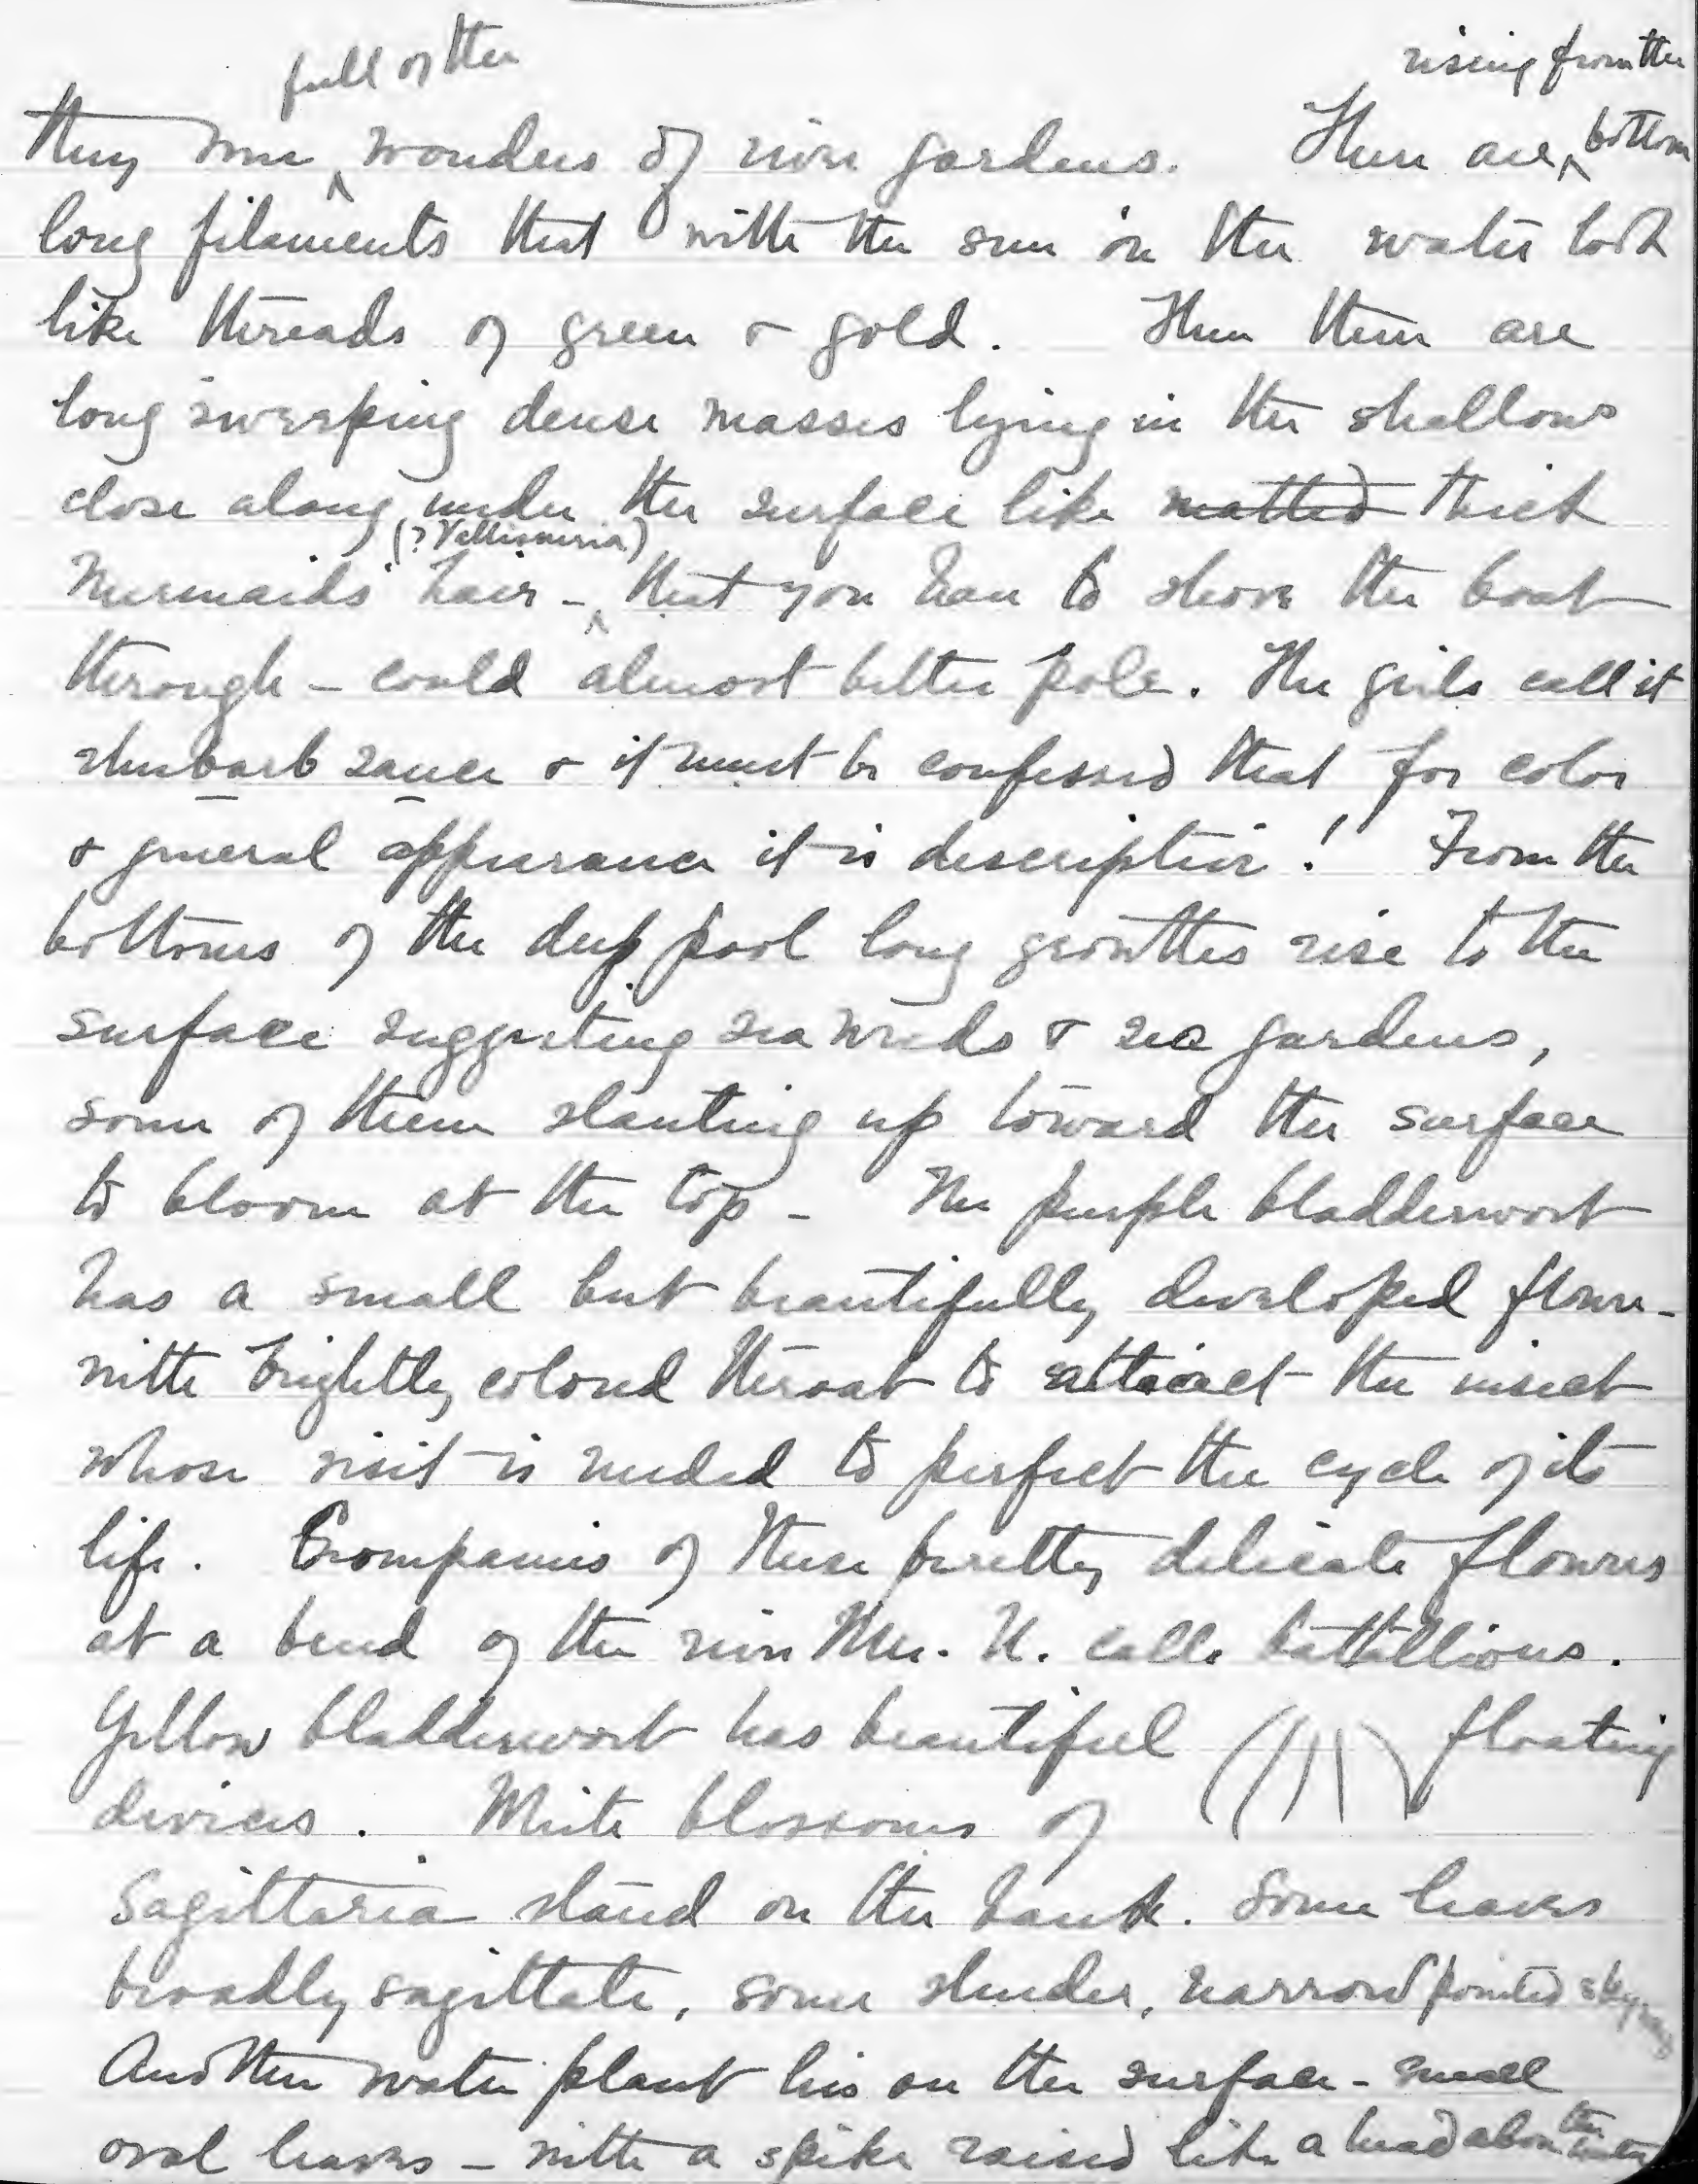 full of the
rising from the
they were ^ wonders of river gardens. There are ^ bottom
long filaments that with the sun on the water look
like threads of green & gold. Then there are
long sweeping dense masses lying in the shallows
close along under the surface like matted thick
(? Vallisneria)
Mermaids' hair - ^ that you have to shove the boat
through - could almost better pole. The girls call it
rhubarb sauce & it must be confessed that for color
& general appearance it is descriptive! From the
bottoms of the deep pool long growths rise to the
surface suggesting sea weeds & sea gardens,
some of them slanting up toward the surface
to bloom at the top - The purple bladderwort
has a small but beautifully developed flower -
with brightly colored throat to attract the insect
whose visit is needed to perfect the cycle of its
life. Companies of these pretty delicate flowers
at a bend of the river Mr. H. calls battallions.
Yellow bladderwort has beautiful floating
devices. White blossoms of
Sagittaria stand on the bank. Some leaves
broadly sagittate, some slender, narrow pointed skyward
Another water plant lies on the surface - small
oval leaves - with a spike raised like a head above the water